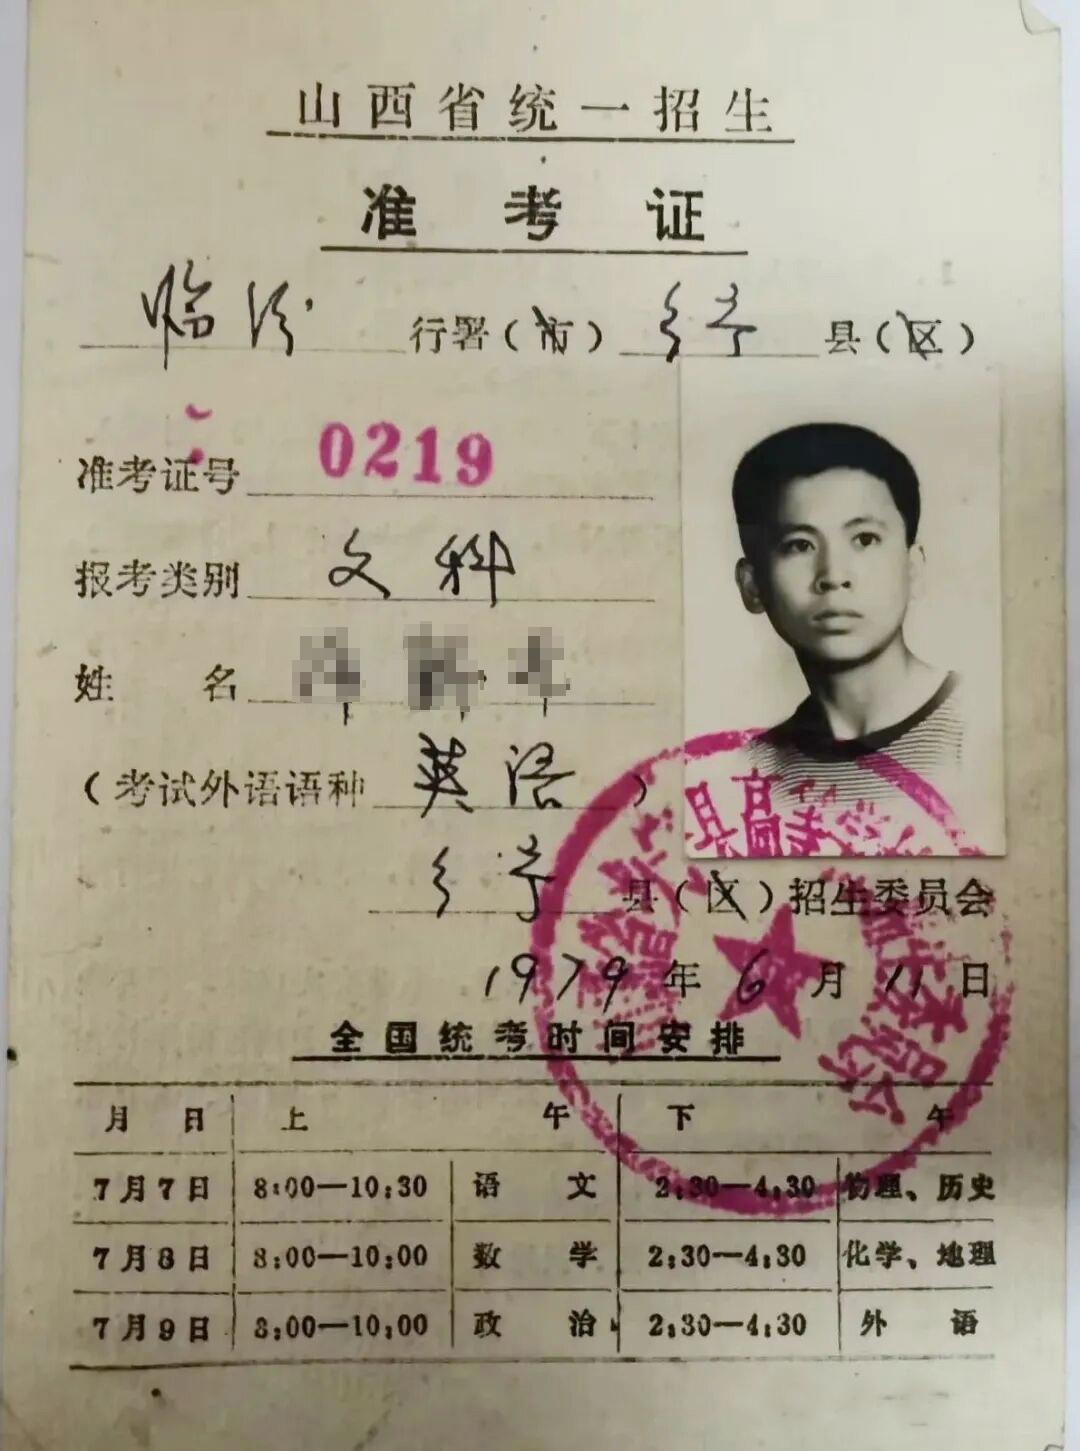 山西省统一招生
准考证
临汾行署（市）乡宁县（区）
准考证号 0219
报考类别 文科
姓名
（考试外语语种 英语）
乡宁县（区）招生委员会
1979年6月11日
全国统考时间安排
月 日 上 午 下 午
7月7日 8:00—10:30 语文 2:30—4:30 物理、历史
7月8日 8:00—10:00 数学 2:30—4:30 化学、地理
7月9日 8:00—10:00 政治 2:30—4:30 外语